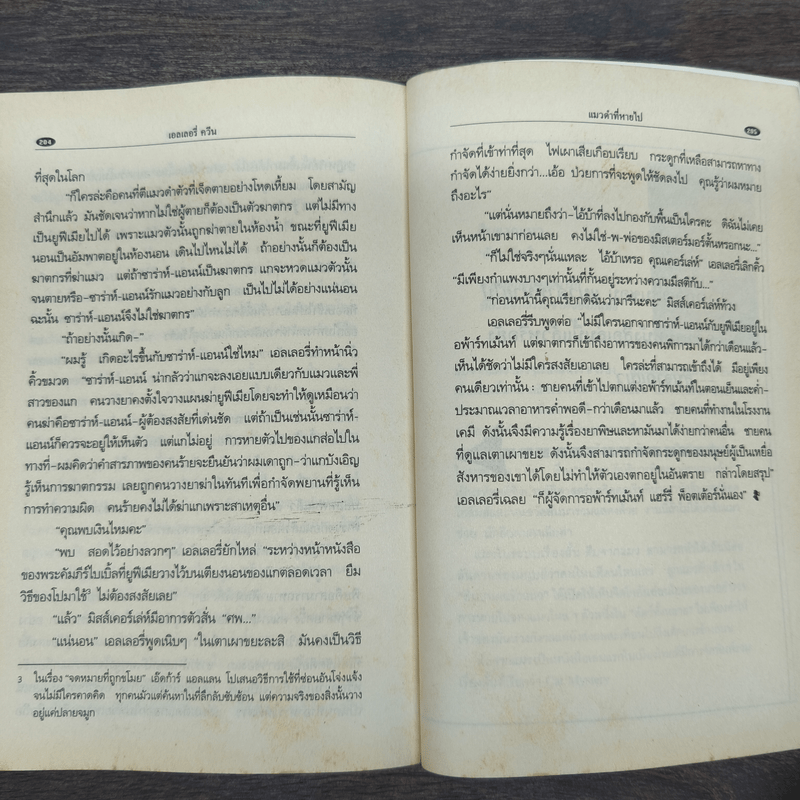 204
เอลเลอรี่ ควีน
ที่สุดในโลก
"ก็ใครล่ะคือคนที่ตีแมวดำตัวที่เจ็ดตายอย่างโหดเหี้ยม โดยสามัญ
สำนึกแล้ว มันชัดเจนว่าหากไม่ใช่ผู้ตายก็ต้องเป็นตัวฆาตกร แต่ไม่มีทาง
เป็นยูฟีเมียไปได้ เพราะแมวตัวนั้นถูกฆ่าตายในห้องน้ำ ขณะที่ยูฟีเมีย
นอนเป็นอัมพาตอยู่ในห้องนอน เดินไปไหนไม่ได้ ถ้าอย่างนั้นก็ต้องเป็น
ฆาตกรที่ฆ่าแมว แต่ถ้าซาร่าห์-แอนน์เป็นฆาตกร แกจะหวดแมวตัวนั้น
จนตายหรือ-ซาร่าห์-แอนน์รักแมวอย่างกับลูก เป็นไปไม่ได้อย่างแน่นอน
ฉะนั้น ซาร่าห์-แอนน์จึงไม่ใช่ฆาตกร"
"ถ้าอย่างนั้นเกิด-"
"ผมรู้ เกิดอะไรขึ้นกับซาร่าห์-แอนน์ใช่ไหม" เอลเลอรี่ทำหน้านิ่ว
คิ้วขมวด "ซาร่าห์-แอนน์ น่ากลัวว่าแกจะลงเอยแบบเดียวกับแมวและพี่
สาวของแก คนวางยาคงตั้งใจวางแผนฆ่ายูฟีเมียโดยจะทำให้ดูเหมือนว่า
คนฆ่าคือซาร่าห์-แอนน์-ผู้ต้องสงสัยที่เด่นชัด แต่ถ้าเป็นเช่นนั้นซาร่าห์-
แอนน์ก็ควรจะอยู่ให้เห็นตัว แต่แกไม่อยู่ การหายตัวไปของแกส่อไปใน
ทางที่-ผมคิดว่าคำสารภาพของคนร้ายจะยืนยันว่าผมเดาถูก-ว่าแกบังเอิญ
รู้เห็นการฆาตกรรม เลยถูกคนวางยาฆ่าในทันทีเพื่อกำจัดพยานที่รู้เห็น
การทำความผิด คนร้ายคงไม่ได้ฆ่าแกเพราะสาเหตุอื่น"
"คุณพบเงินไหมคะ"
"พบ สอดไว้อย่างลวกๆ" เอลเลอรี่ยักไหล่ "ระหว่างหน้าหนังสือ
ของพระคัมภีร์ไบเบิ้ลที่ยูฟีเมียวางไว้บนเตียงนอนของแกตลอดเวลา ยืม
วิธีของโปมาใช้3 ไม่ต้องสงสัยเลย"
"แล้ว" มิสส์เคอร์เล่ห์มีอาการตัวสั่น "ศพ..."
"แน่นอน" เอลเลอรี่พูดเนิบๆ "ในเตาเผาขยะละสิ มันคงเป็นวิธี
3 ในเรื่อง "จดหมายที่ถูกขโมย" เอ๊ดก้าร์ แอลแลน โปเสนอวิธีการใช้ที่ซ่อนอันโจ่งแจ้ง
จนไม่มีใครคาดคิด ทุกคนมัวแต่ค้นหาในที่ลึกลับซับซ้อน แต่ความจริงของสิ่งนั้นวาง
อยู่แค่ปลายจมูก
แมวดำที่หายไป
205
กำจัดที่เข้าท่าที่สุด ไฟเผาเสียเกือบเรียบ กระดูกที่เหลือสามารถหาทาง
กำจัดได้ง่ายยิ่งกว่า...เอ้อ ป่วยการที่จะพูดให้ชัดลงไป คุณรู้ว่าผมหมาย
ถึงอะไร"
"แต่นั่นหมายถึงว่า-ไอ้บ้าที่ลงไปกองกับพื้นเป็นใครคะ ดิฉันไม่เคย
เห็นหน้าเขามาก่อนเลย คงไม่ใช่-พ-พ่อของมิสเตอร์มอร์ตั้นหรอกนะ..."
"ก็ไม่ใช่จริงๆนั่นแหละ ไอ้บ้าเหรอ คุณเคอร์เล่ห์" เอลเลอรี่เลิกคิ้ว
"มีเพียงกำแพงบางๆเท่านั้นที่กั้นอยู่ระหว่างความมีสติกับ..."
"ก่อนหน้านี้คุณเรียกดิฉันว่ามารีนะคะ" มิสส์เคอร์เล่ห์ท้วง
เอลเลอรี่รีบพูดต่อ "ไม่มีใครนอกจากซาร่าห์-แอนน์กับยูฟีเมียอยู่ใน
อพ้าร์ทเม้นท์ แต่ฆาตกรก็เข้าถึงอาหารของคนพิการมาได้กว่าเดือนแล้ว-
เห็นได้ชัดว่าไม่มีใครสงสัยเอาเลย ใครล่ะที่สามารถเข้าถึงได้ มีอยู่เพียง
คนเดียวเท่านั้น: ชายคนที่เข้าไปตกแต่งอพ้าร์ทเม้นท์ในตอนเย็นและค่ำ-
ประมาณเวลาอาหารค่ำพอดี-กว่าเดือนมาแล้ว ชายคนที่ทำงานในโรงงาน
เคมี ดังนั้นจึงมีความรู้เรื่องยาพิษและหามันมาได้ง่ายกว่าคนอื่น ชายคน
ที่ดูแลเตาเผาขยะ ดังนั้นจึงสามารถกำจัดกระดูกของมนุษย์ผู้เป็นเหยื่อ
สังหารของเขาได้โดยไม่ทำให้ตัวเองตกอยู่ในอันตราย กล่าวโดยสรุป"
เอลเลอรี่เฉลย "ก็ผู้จัดการอพ้าร์ทเม้นท์ แฮร์รี่ พ็อตเต้อร์นั่นเอง"